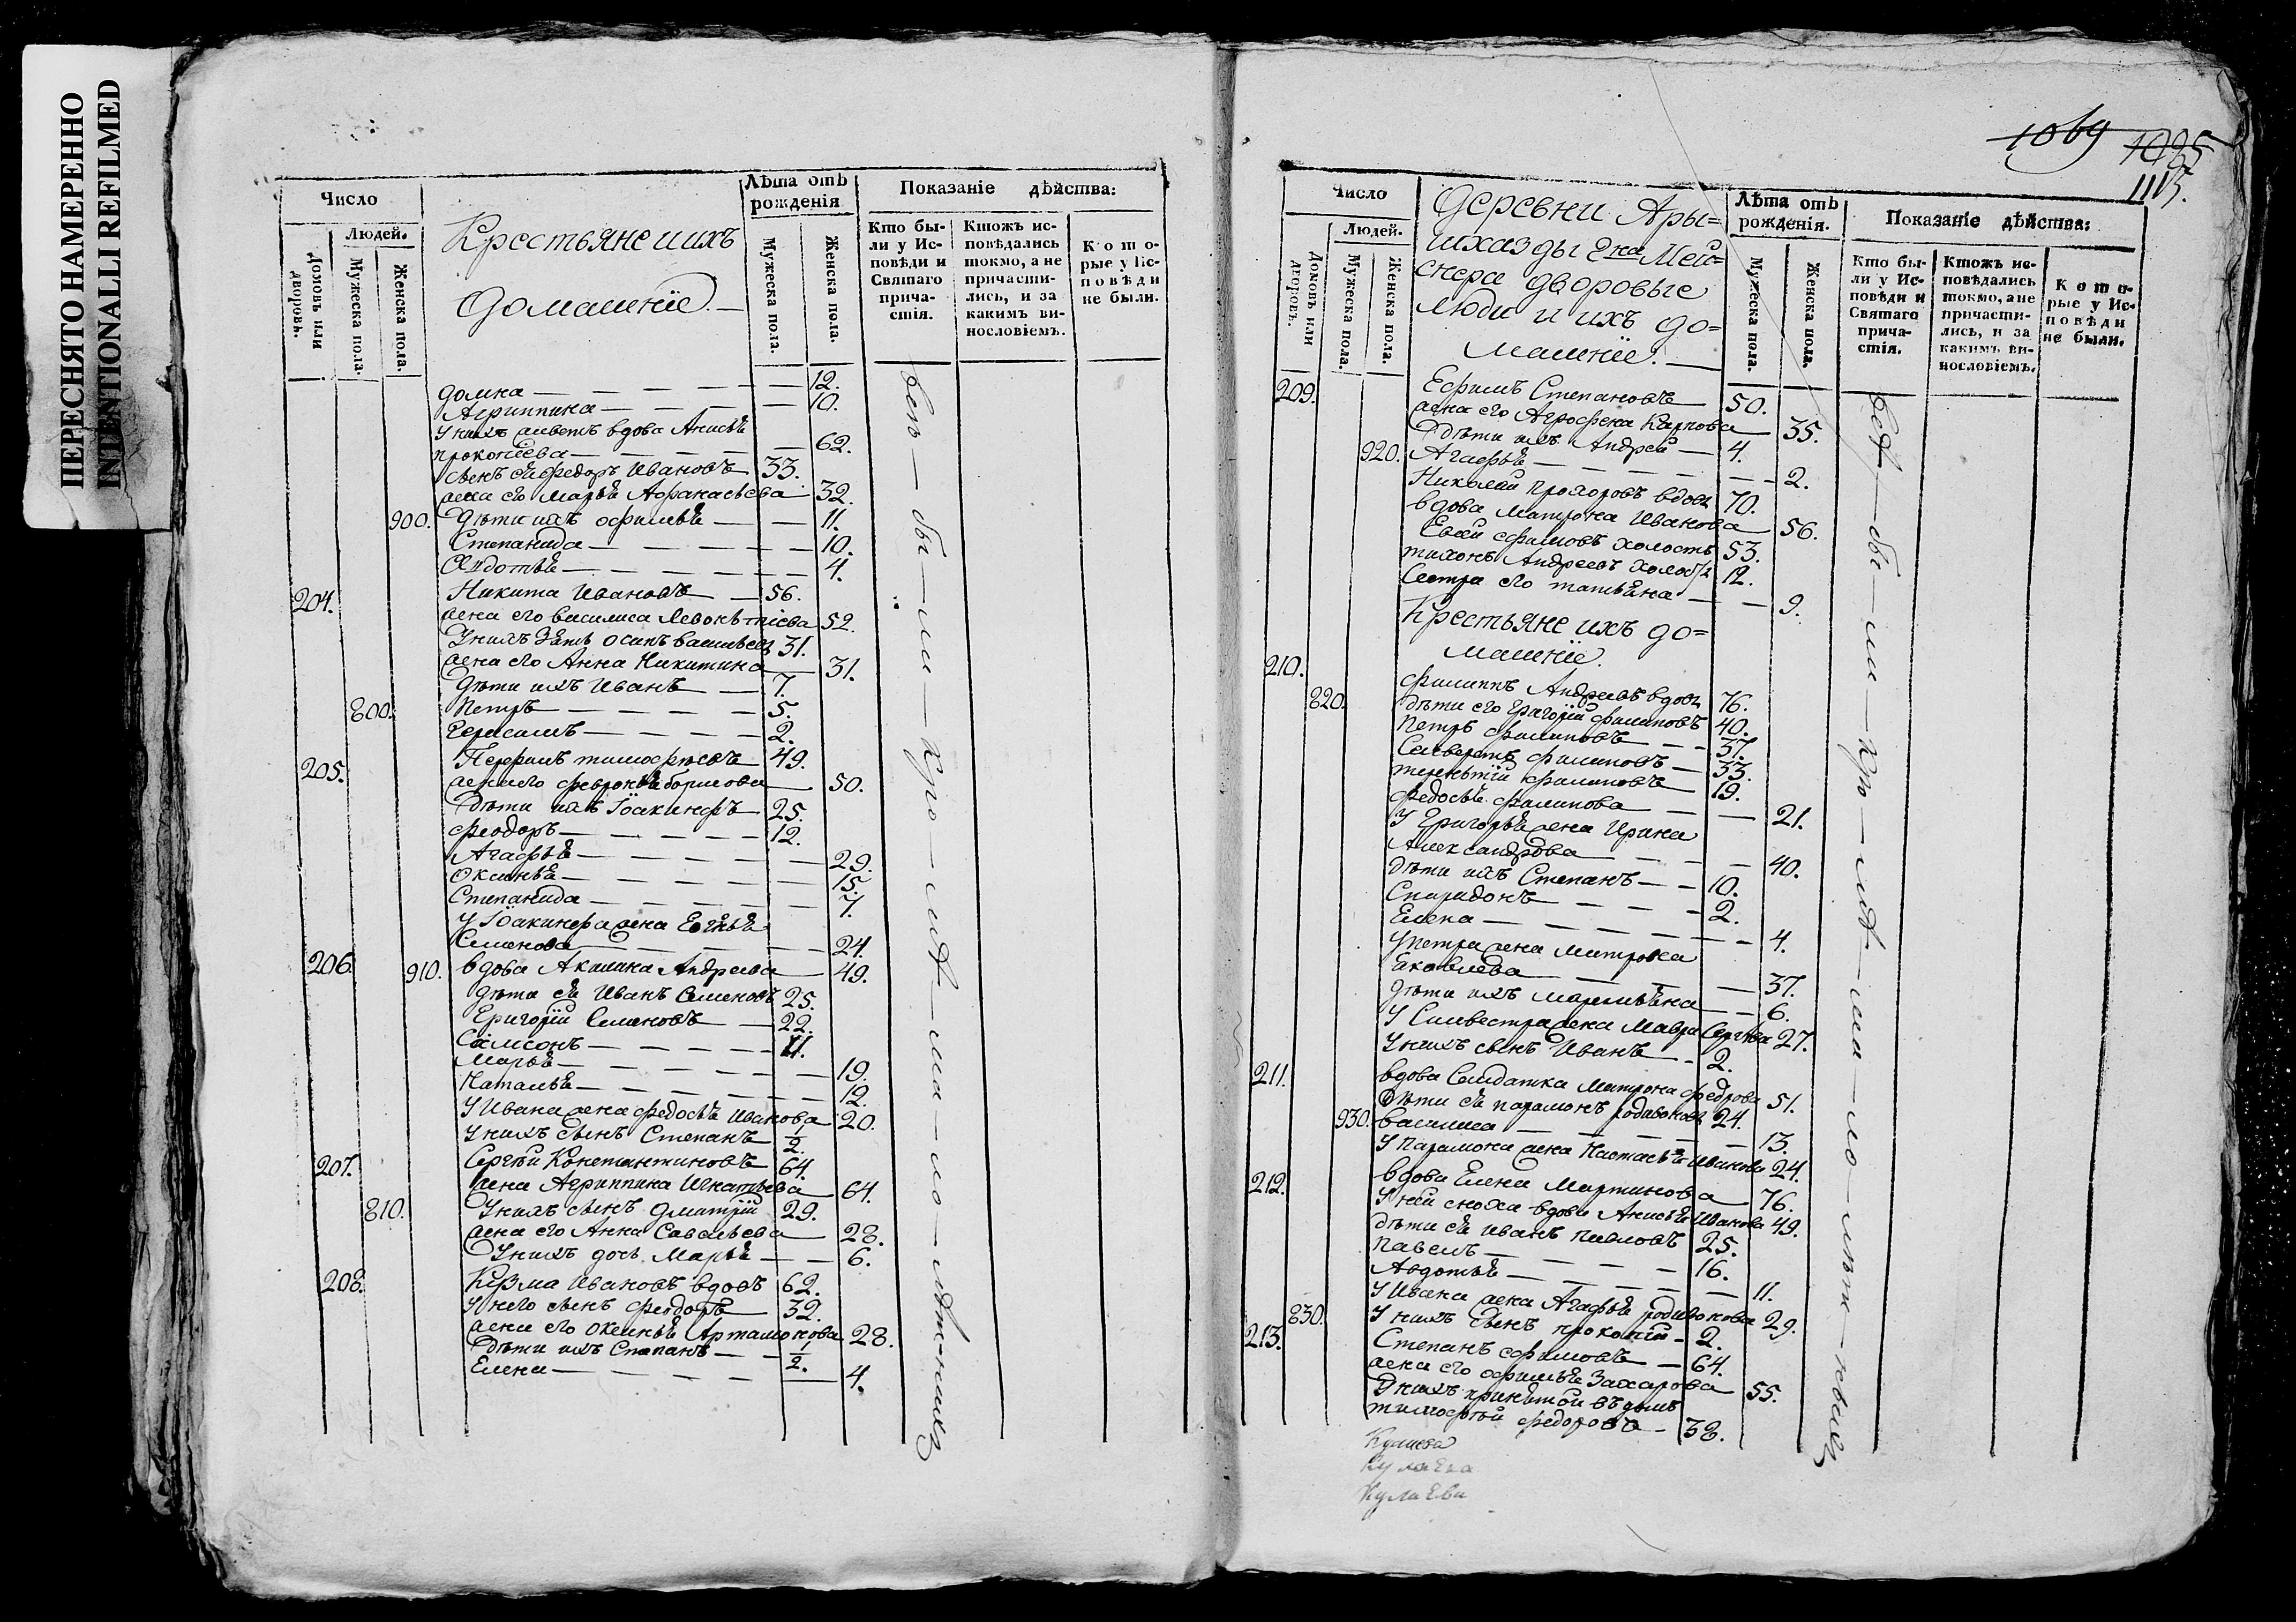 ПЕРЕСНЯТО НАМЕРЕННО
INTENTIONALLI REFILMED
Число
Людей.
Домовъ или дворовъ.
Мужеска пола.
Женска пола.
Крестьяне и ихъ
домашніе.
Лѣта отъ рожденія
Мужеска пола.
Женска пола.
Показаніе дѣйства:
Кто были у Исповѣди и Святаго причастія.
Ктожъ исповѣдались токмо, а не причастились, и за какимъ винословіемъ.
Которые у Исповѣди не были.
Домна — 12.
Агриппина — 10.
У нихъ живетъ вдова Анисья
Прокопіева — 62.
Сынъ ея Федоръ Ивановъ 33.
жена его Марья Афанасьева 32.
900. Дѣти ихъ Офимья — 11.
Степанида — 10.
Авдотья — 4.
204. Никита Ивановъ — 56.
жена его Василиса Леонтіева 52.
У нихъ зять Осипъ Васильевъ 31.
жена его Анна Никитина 31.
Дѣти ихъ Иванъ — 7.
800. Петръ — 5.
Герасимъ — 2.
205. Перфилъ Тимофѣевъ 49.
жена его Февронья Борисова 50.
Дѣти ихъ Іоакинфъ 25.
Феодоръ — 12.
Агафья — 29.
Оксинья — 15.
Степанида — 7.
У Іоакинфа жена
Семенова — 24.
206. 910. вдова Акилина Андреева 49.
Дѣти ея Иванъ Семеновъ 25.
Григорій Семеновъ — 22.
Самсонъ — 11.
Марья — 19.
Наталья — 12.
У Ивана жена Федосья Иванова 20.
У нихъ сынъ Степанъ 1/2.
207. Сергѣй Константиновъ 64.
жена Агриппина Игнатьева 64.
810. У нихъ сынъ Дмитрій 29.
жена его Анна Савельева 28.
У нихъ дочь Марья — 6.
208. Козма Ивановъ вдовъ 62.
У него сынъ Феодоръ 32.
жена его Оксинья Артамонова 28.
Дѣти ихъ Степанъ — 1/2.
Елена — 4.
1069 1095
1115.
Число
Людей.
Домовъ или дворовъ.
Мужеска пола.
Женска пола.
Деревни Ары=
шхазды Г-на Мей=
снера дворовые
люди и ихъ до=
машніе.
Лѣта отъ рожденія.
Мужеска пола.
Женска пола.
Показаніе дѣйства:
Кто были у Исповѣди и Святаго причастія.
Ктожъ исповѣдались токмо, а не причастились, и за какимъ винословіемъ.
Которые у Исповѣди не были.
209. Ефимъ Степановъ 50.
жена его Агрофена Карпова 35.
Дѣти ихъ Андрей — 4.
920. Агафья — 2.
Николай Прохоровъ вдовъ 70.
вдова Матрона Иванова 56.
Ефимовъ холостъ 53.
Тихонъ Андреевъ холостъ 12.
Сестра его Татьяна — 9.
Крестьяне ихъ до=
машніе.
210. Филиппъ Андреевъ вдовъ 76.
820. Дѣти его Григорій Филиповъ 40.
Петръ Филиповъ — 37.
Силверстъ Филиповъ — 33.
Терентій Филиповъ 19.
Федосья Филипова — 21.
У Григорья жена Ирина
Александрова — 40.
Дѣти ихъ Степанъ — 10.
Спиридонъ — 2.
Елена — 4.
У Петра жена Матрона
Яковлева — 37.
Дѣти ихъ Маремьяна — 6.
У Силвестра жена Мавра Сергѣева 27.
У нихъ сынъ Иванъ — 2.
211. вдова Солдатка Матрона Федрова 51.
Дѣти ея Парамонъ Родивоновъ 24.
930. Василиса — 13.
У Парамона жена Настасья Иванова 24.
212. вдова Елена Мартинова 76.
У ней сноха вдова Анисья Иванова 49.
Дѣти ея Иванъ Павловъ 25.
Павелъ — 16.
Авдотья — 11.
У Ивана жена Агафья Родивонова 29.
830. У нихъ сынъ Прокопій — 2.
213. Степанъ Ефимовъ — 64.
жена его Офимья Захарова 55.
У нихъ принятой въ домъ
Тимофѣй Федоровъ — 38.
Кулаева